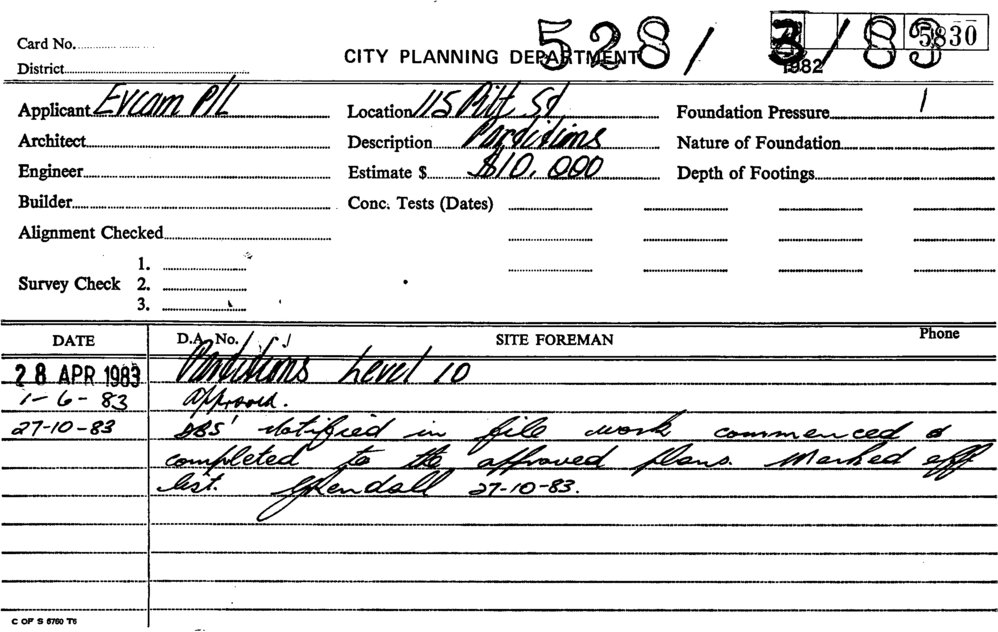 528/3/83
5830
Card No.
CITY PLANNING DEPARTMENT
1982
District
Applicant Evcam P/L Location 115 Pitt St Foundation Pressure
Architect Description Partitions Nature of Foundation
Engineer Estimate $ $10,000 Depth of Footings
Builder Conc. Tests (Dates)
Alignment Checked
1.
Survey Check 2.
3.
DATE D.A. No. SITE FOREMAN Phone
28 APR 1983 Partitions Level 10
1-6-83 approved.
27-10-83 DBS' notified in file work commenced &
completed to the approved plans. Marked off
list. GKendall 27-10-83.
C OF S 6760 T6